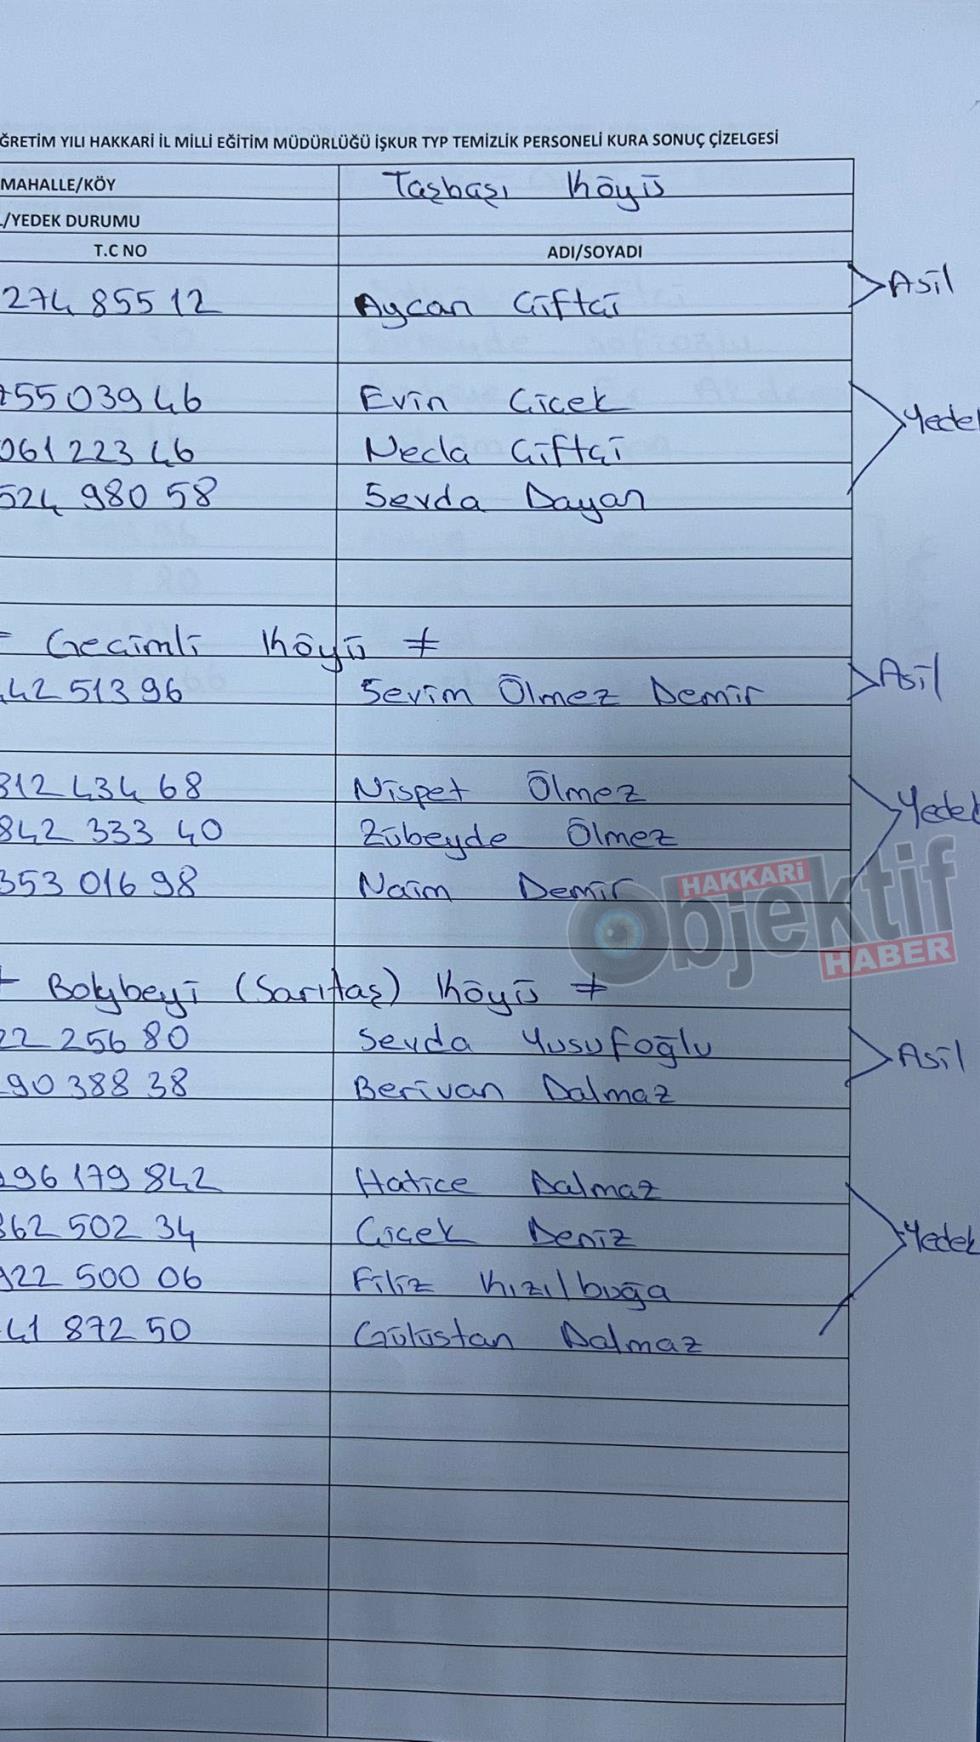 ĞRETİM YILI HAKKARİ İL MİLLİ EĞİTİM MÜDÜRLÜĞÜ İŞKUR TYP TEMİZLİK PERSONELİ KURA SONUÇ ÇİZELGESİ
MAHALLE/KÖY Taşbaşı Köyü
/YEDEK DURUMU
T.C NO ADI/SOYADI
274 855 12 Aycan Çiftçi Asil
55 039 46 Evin Çiçek
061 223 46 Necla Çiftçi Yedek
524 980 58 Sevda Dayan
= Geçimli Köyü ≠
42 513 96 Sevim Ölmez Demir Asil
312 434 68 Nispet Ölmez Yedek
842 333 40 Zübeyde Ölmez
353 016 98 Naim Demir
HAKKARİ
Objektif
HABER
Bolybeyi (Sarıtaş) Köyü ≠
22 256 80 Sevda Yusufoğlu Asil
90 388 38 Berivan Dalmaz
96 179 842 Hatice Dalmaz
362 502 34 Çiçek Deniz Yedek
22 500 06 Filiz Kızılbuğa
41 872 50 Gülüstan Dalmaz